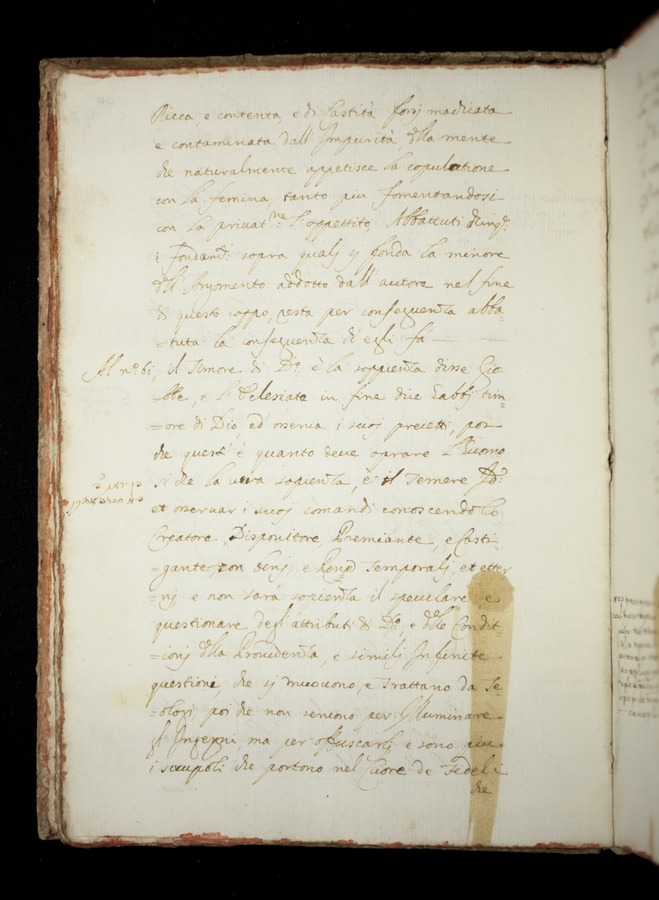 Ricca e contenta e di Castità forsi madiata
e contaminata dall Impurità, dlla mente
che naturalmente appetisce la copulatione
con la femina, tanto piu fomentandosi
con la privat.ne l'oppettito, Abbattuti dunq;
i fondam.ti sopra quali si fonda la minore
dell Argomento addotto dall autore nel fine
di questo cappo, resta per conseguenza abba-
=tuta la conseguenza ch'egli fa
Al n.º 61, il Timore di D.º è la sappienza disse Gio
=bbe, e l'Eclesiaste in fine dice Labbj tim=
=ore di Dio ed' osserva i suoj precetti, poi
che quest' è quanto deve oprare l'Huomo
si che la vera sapienza, è il Temere Id.º
et osservar i suoj comandi conoscendolo
Creatore, Dispositore, Premiante, e Casti=
=gante con benj, e Pene Temporalj, et etter
=nj e non sarà sapienza il speculare, e
questionare degl attributi di D.º, e dlle Condit=
=ionj dlla Providenza, e similj Infinite
questioni che si muovono, e Trattano da Te=
=ologi poi che non servono per Illuminare
gl Ingegni, ma per offuscarlj e sono piu
i scrupoli che portono nel Cuore de Fedeli
che